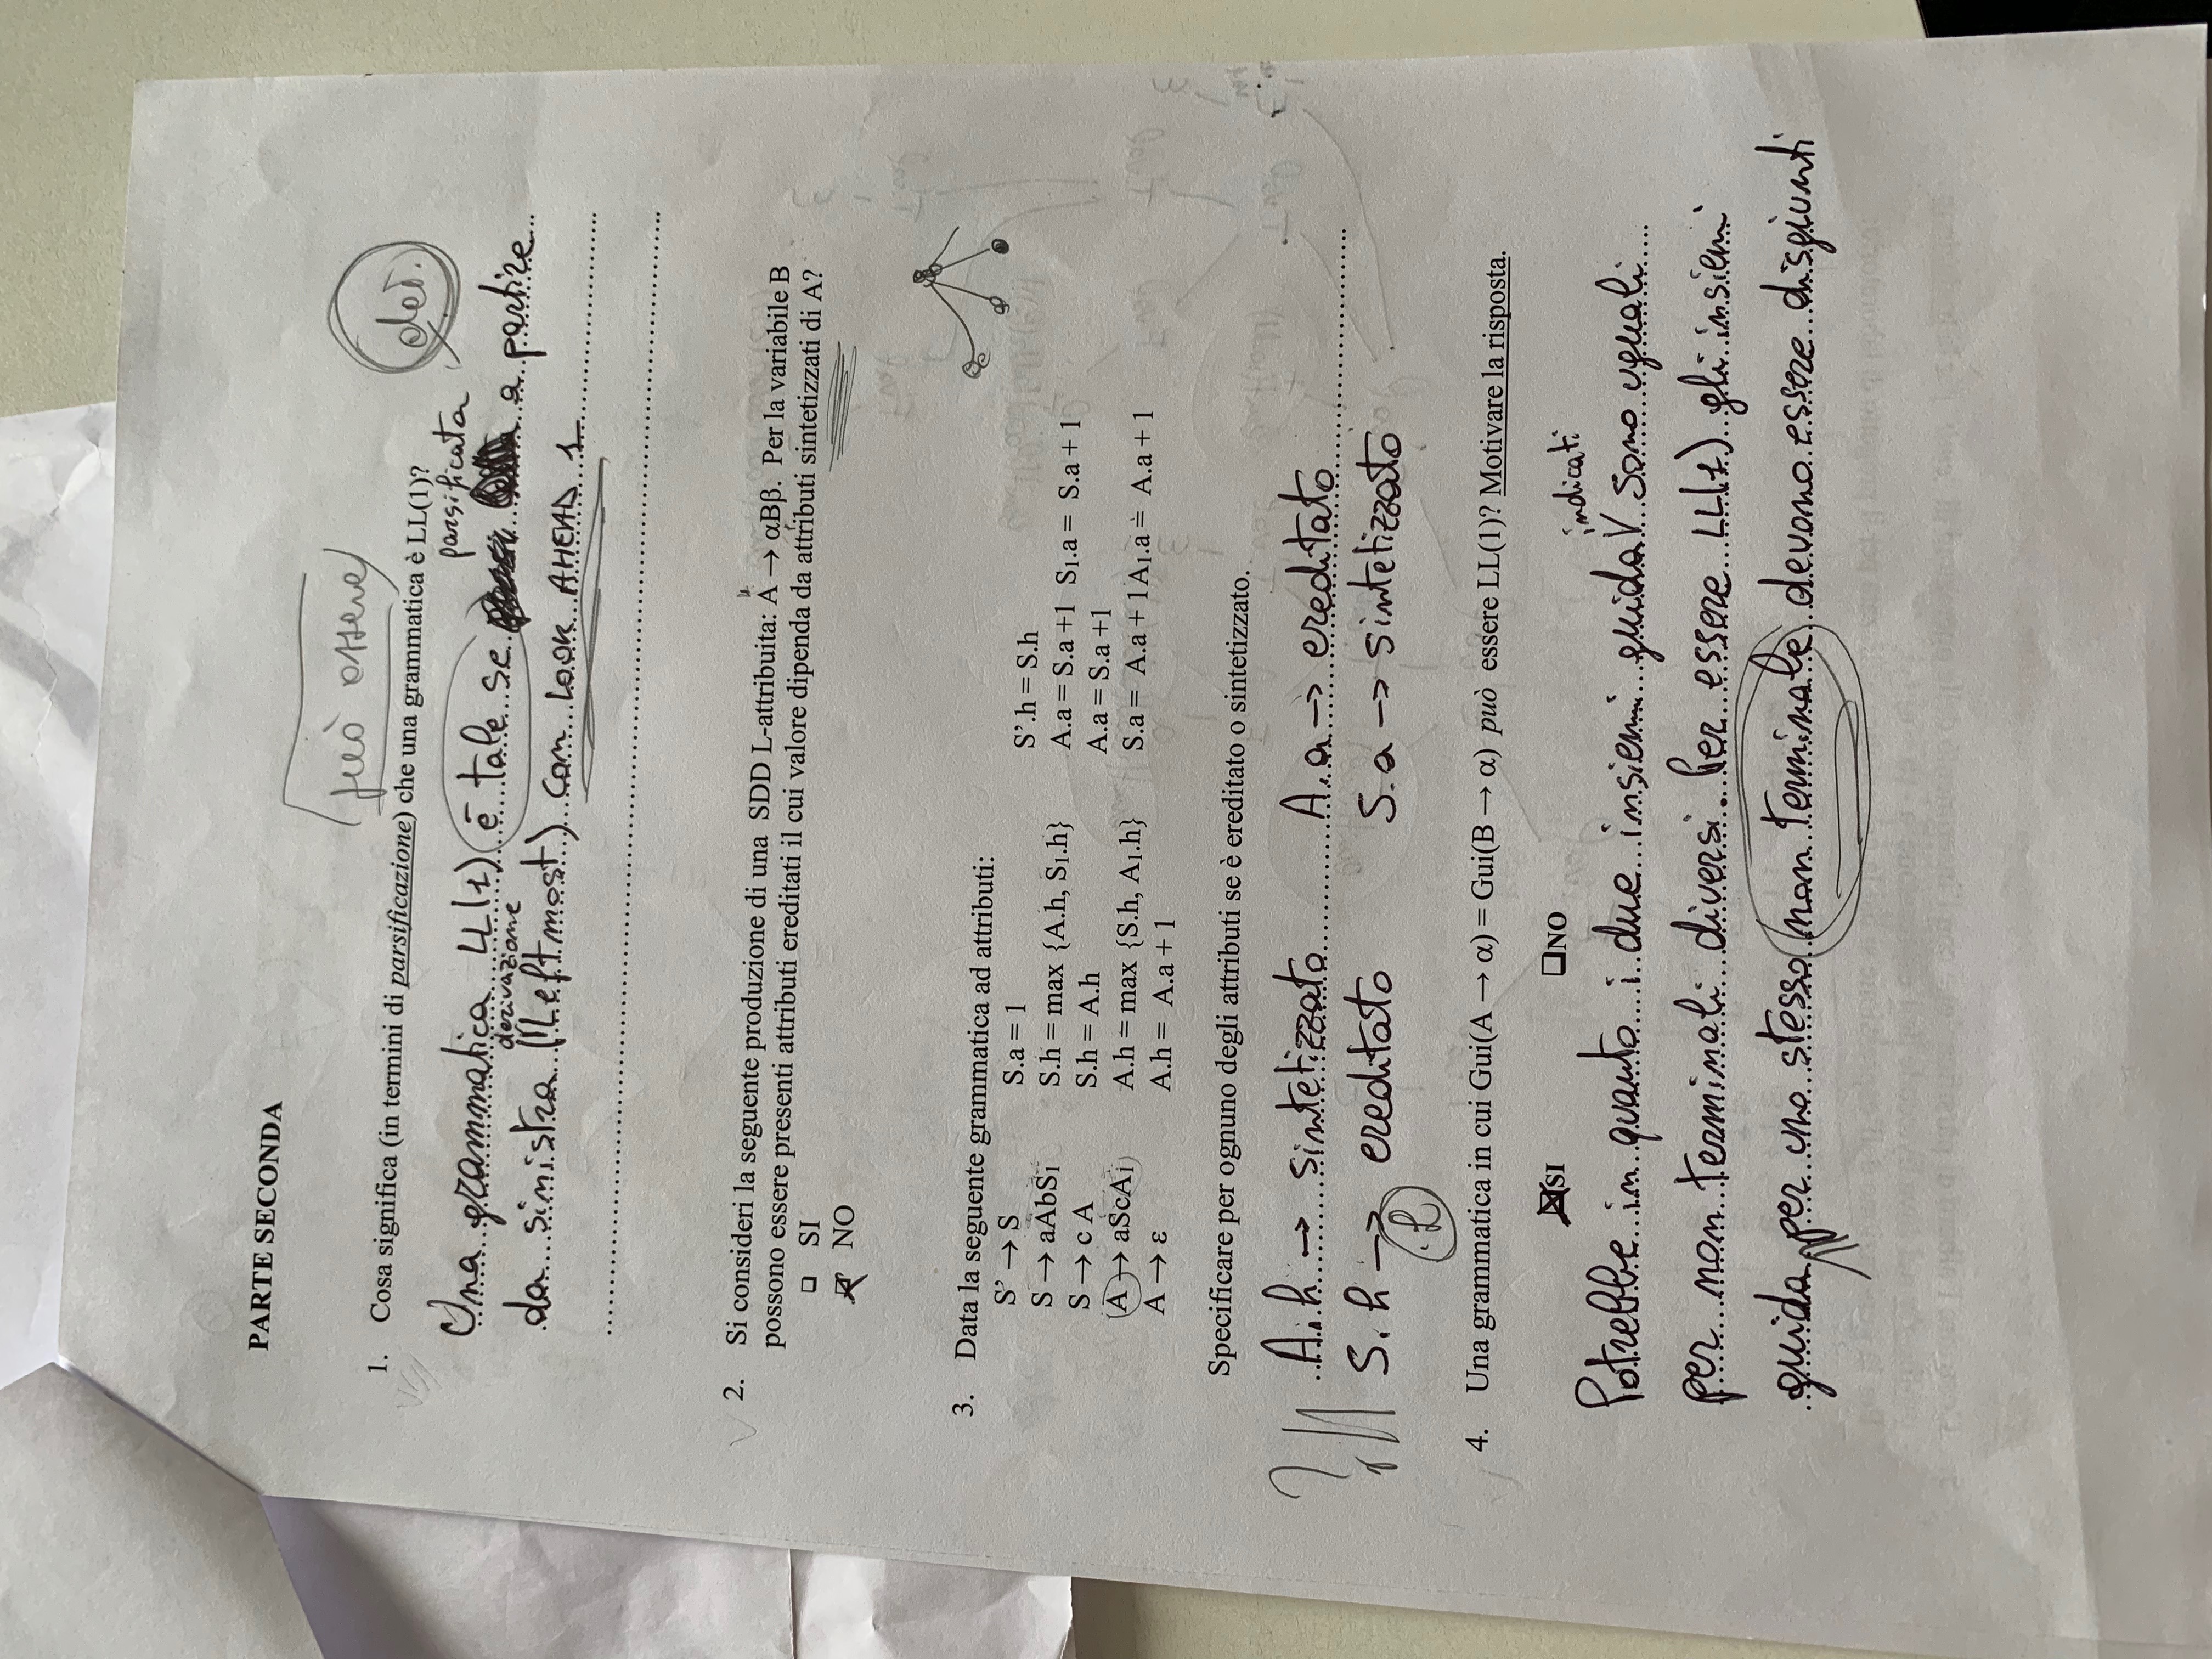 PARTE SECONDA
può essere
det.
1. Cosa significa (in termini di parsificazione) che una grammatica è LL(1)?
parsificata
Una grammatica LL(1) è tale se a partire
derivazione
da sinistra (Leftmost) con LOOK AHEAD 1
2. Si consideri la seguente produzione di una SDD L-attribuita: A → αBβ. Per la variabile B
possono essere presenti attributi ereditati il cui valore dipenda da attributi sintetizzati di A?
SI
NO
3. Data la seguente grammatica ad attributi:
S’ → S S.a = 1 S’.h = S.h
S → aAbS₁ S.h = max {A.h, S₁.h} A.a = S.a +1 S₁.a = S.a + 1
S → c A S.h = A.h A.a = S.a +1
A → aScA₁ A.h = max {S.h, A₁.h} S.a = A.a + 1 A₁.a = A.a + 1
A → ε A.h = A.a + 1
Specificare per ognuno degli attributi se è ereditato o sintetizzato.
A.h → sintetizzato A.a → ereditato
S.h → ereditato S.a → sintetizzato
4. Una grammatica in cui Gui(A → α) = Gui(B → α) può essere LL(1)? Motivare la risposta.
SI NO
indicati
Potrebbe in quanto i due insiemi guida V sono uguali
per non terminali diversi. Per essere LL(1) gli insiemi
guida per uno stesso non terminale devono essere disgiunti